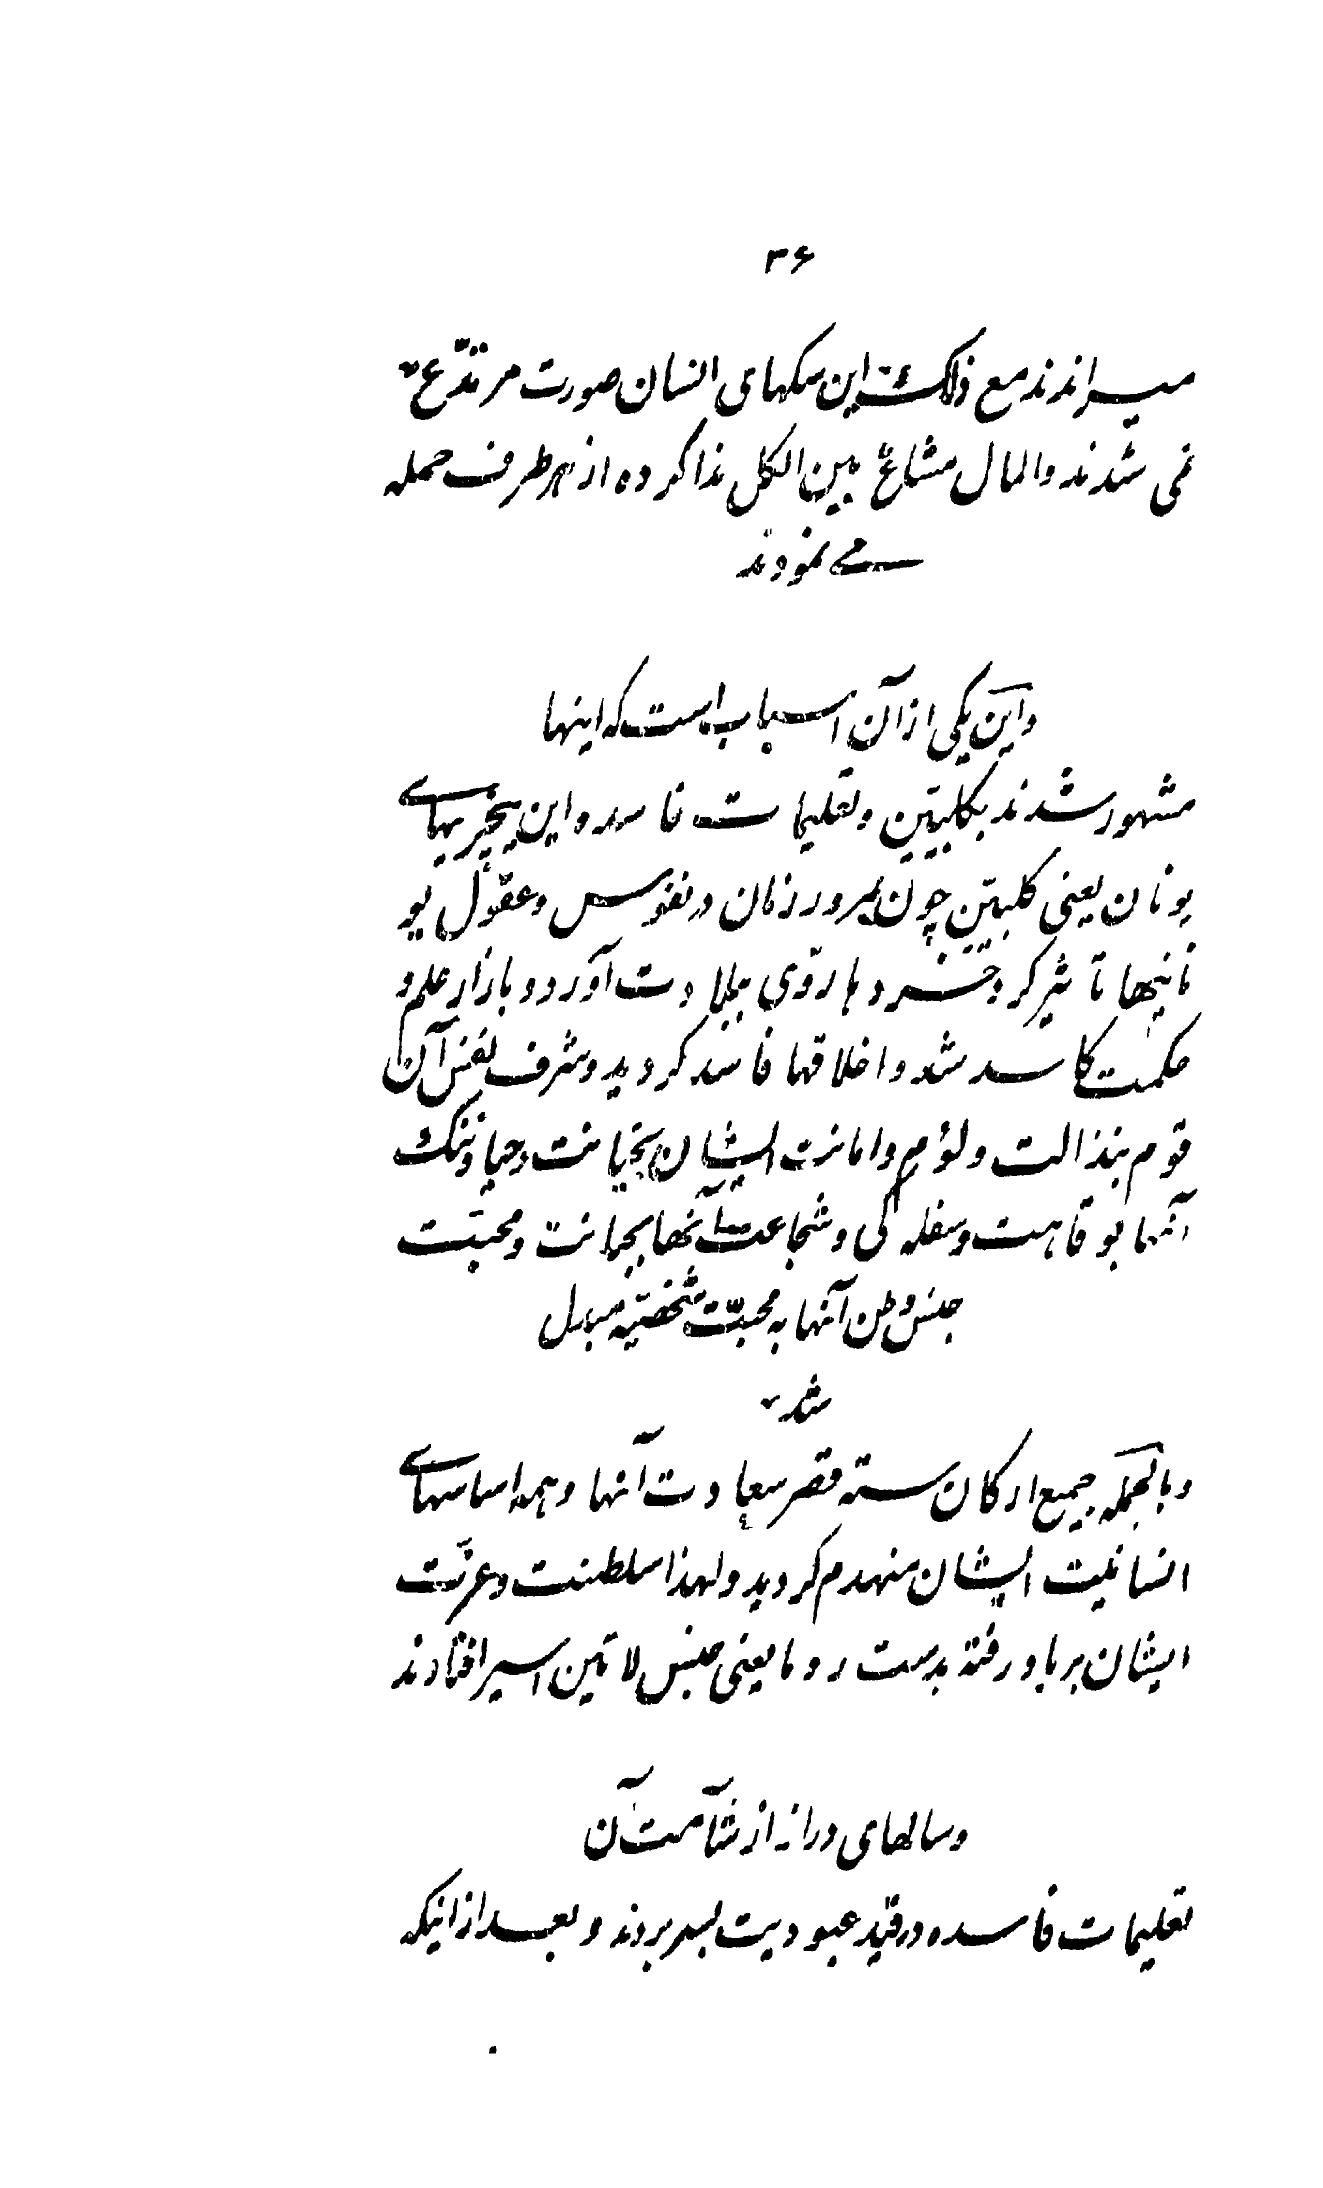 ۳۶
میراندند مع ذلک این سکهای انسان صورت مرتدّع
نمی شدند والمال مشاعٌ بین الکل ندا کرده از هر طرف حمله
می نمودند
واین یکی از آن اسباب است که اینها
مشهور شدند بکلبیّین وتعلیمات فاسد واین نیچریهای
یونان یعنی کلبیّین چون بمرور زمان در نفوس وعقول یو
نانیها تاثیر کرد خردها روی ببلادت آورد وبازار علم و
حکمت کاسد شد واخلاقها فاسد کردید وشرف نفس آن
قوم بنذالت ولؤم وامانت ایشان بخیانت وحیا وننک
آنها بوقاهت وسفله کی وشجاعت آنها بجبانت ومحبّت
جنس وطن آنها به محبّت شخصیّه مبدل
شد
وبالجمله جمیع ارکان سته قصر سعادت آنها وهمه اساسهای
انسانیت ایشان منهدم کردید ولهذا سلطنت وعزّت
ایشان بر باد رفته بدست روما یعنی جنس لاتین اسیر افتادند
وسالهای دراز از شآمت آن
تعلیمات فاسده در قید عبودیت بسر بردند وبعد از اینکه